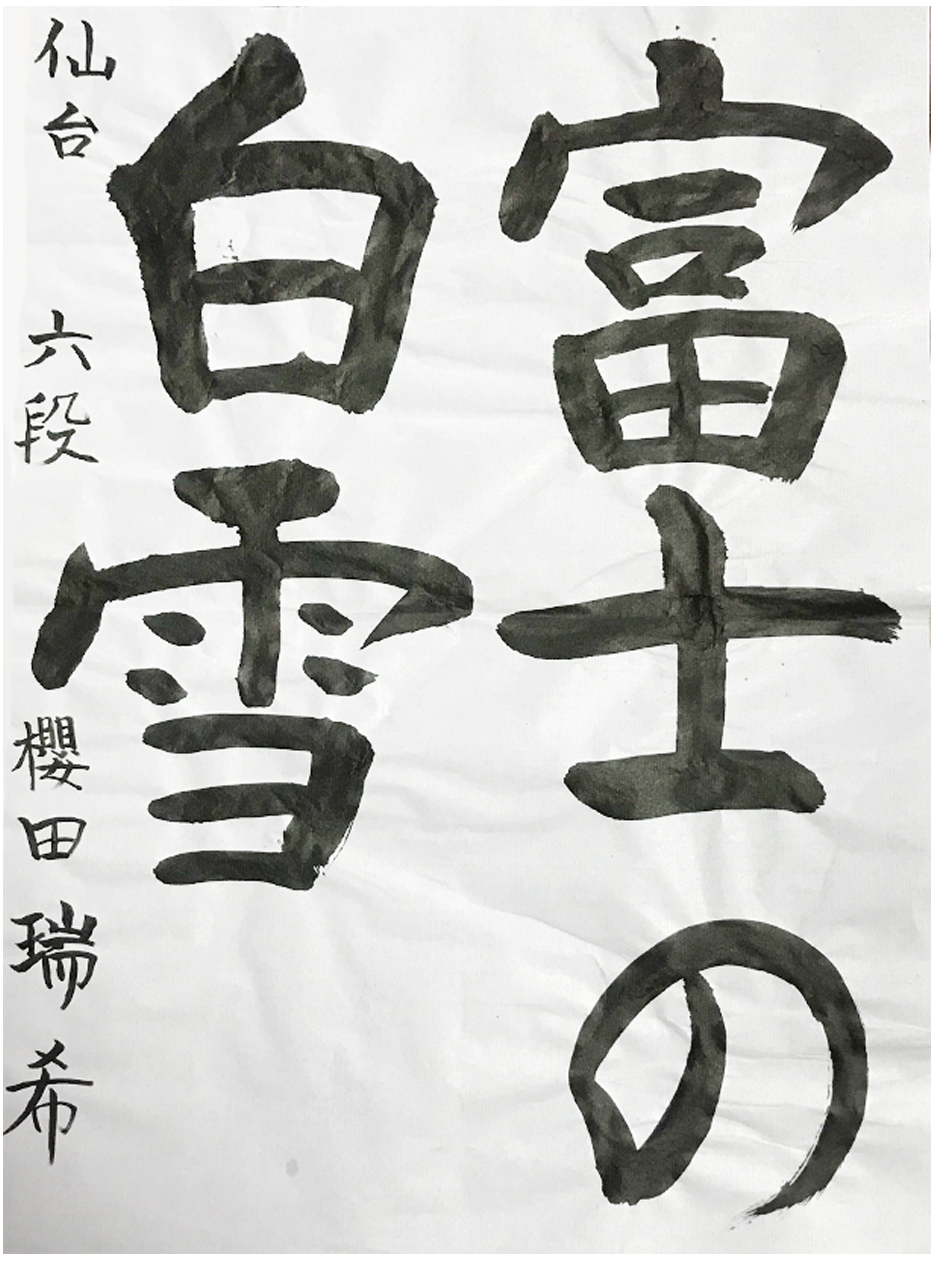 富士の
白雪
仙台 六段 櫻田瑞希